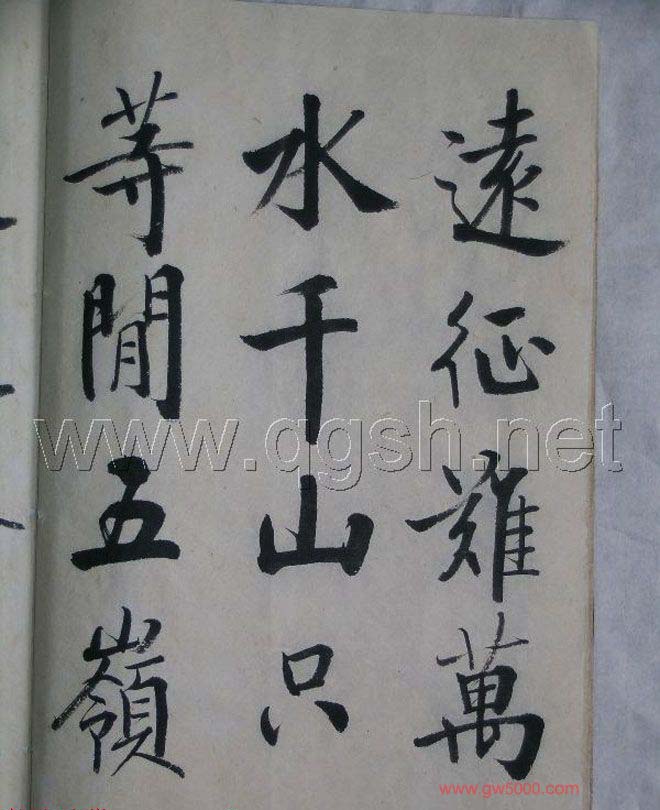 遠征難萬
水千山只
等閒五嶺
www.qgsh.net
www.gw5000.com